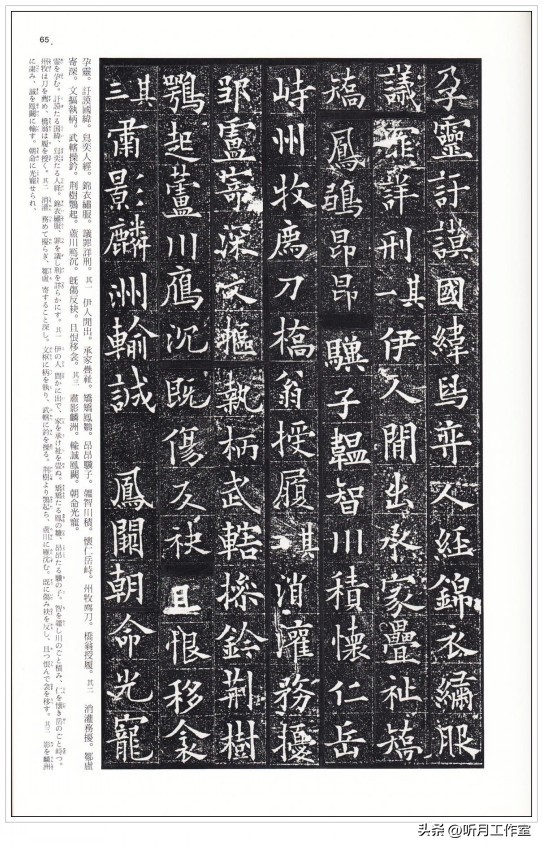 65
孕靈訏謨國緯舄弈人經錦衣繡服
議罪詳刑其一伊人閒出承家疊祉矯
矯鳳鶵昂昂驥子韞智川積懷仁岳
峙州牧薦刀橋翁授履其二消灌務擾
鄒盧寄深文樞執柄武轄操鈐荊樹
鶚起蘆川鴈沉既傷反袂且恨移衾
其三肅影麟洲輸誠鳳闕朝命光寵
孕靈。訏謨國緯。舄奕人經。錦衣繡服。議罪詳刑。其一 伊人閒出。承家疊祉。矯矯鳳鶵。昂昂驥子。韞智川積。懷仁岳峙。州牧薦刀。橋翁授履。其二 消灌務擾。鄒盧
寄深。文樞執柄。武轄操鈐。荊樹鶚起。蘆川鴈沉。既傷反袂。且恨移衾。其三 肅影麟洲。輸誠鳳闕。朝命光寵。
头条 @听月工作室